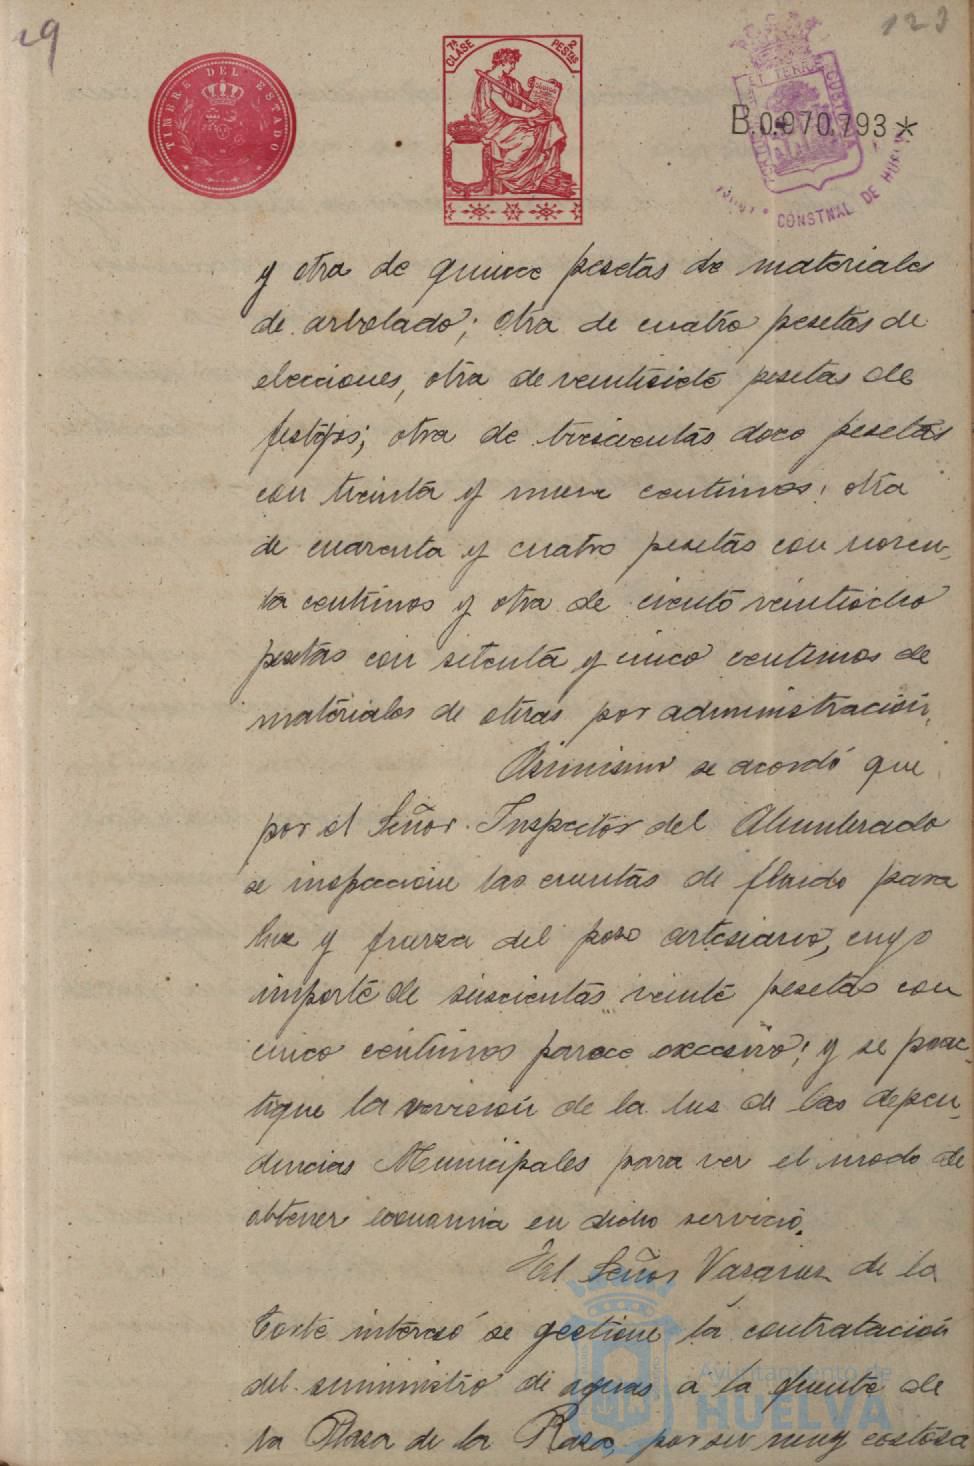 19
123
TIMBRE DEL ESTADO
7ª CLASE
2 PESTAS
B.0.970.793*
CONSTNAL DE HUELVA
y otra de quince pesetas de materiales
de arbolado; otra de cuatro pesetas de
elecciones, otra de veintisiete pesetas de
festejos; otra de trescientas doce pesetas
con treinta y nueve centimos; otra
de cuarenta y cuatro pesetas con noven-
ta centimos y otra de ciento veintiocho
pesetas con setenta y cinco centimos de
materiales de obras por administración.
Asimismo se acordó que
por el Señor Inspector del Alumbrado
se inspeccione las cuentas de fluido para
luz y fuerza del pozo artesiano, cuyo
importe de seiscientas veinte pesetas con
cinco centimos parece excesivo; y se prac-
tique la revisión de la luz de las depen-
dencias Municipales para ver el modo de
obtener economia en dicho servicio.
El Señor Vazquez de la
Corte interesó se gestione la contratación
del suministro de aguas a la fuente de
la Plaza de la Rasa, por ser muy costosa
Ayuntamiento de
HUELVA